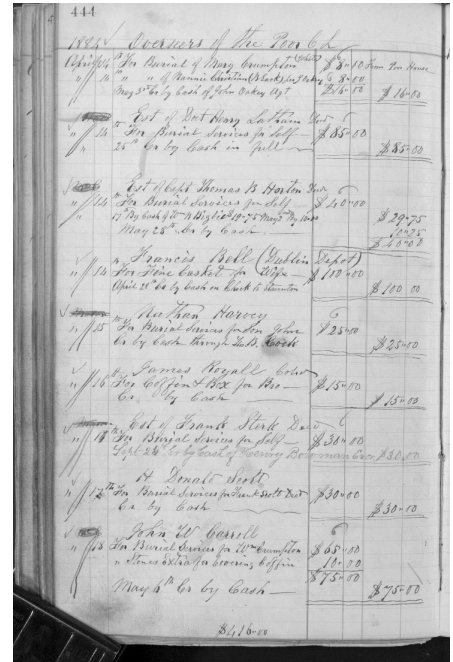 444
Overseers of the Poor
April 14 For Burial of Mary Crumpton $8.00 From Poor House
" 14 " " of Nannie Christian 8.00
May 5th Cr by Cash of John Oakey Agt $16.00 $16.00
Est of Henry Latham Decd
" 14 For Burial Services for Self $85.00
25th Cr by Cash in full $85.00
Est of Capt Thomas B Horton Decd
" 14 For Burial Services for Self $40.00
17 By Cash $29.75
May 28th Cr by Cash $40.00
Francis Bell (Dublin Depot)
" 14 For Fine Casket for Wife $100.00
April 28th Cr by Cash on Check to Staunton $100.00
Nathan Harvey
" 15 For Burial Services for Son John $25.00
Cr by Cash through $25.00
James Royall Cold
" 16 For Coffin & Box for Bro $15.00
Cr. by Cash $15.00
Est of Frank Sterk Decd
" 18 For Burial Services for Self $30.00
Sept 24th Cr by Cash of Henry Bowman $30.00
H Donald Scott
" For Burial Services for Scott Decd $30.00
Cr by Cash $30.00
John W Carroll
" 18 For Burial Services for Wm Crumpton $65.00
" Extra for Covering Coffin 10.00
$75.00
May 6th Cr by Cash $75.00
$416.00